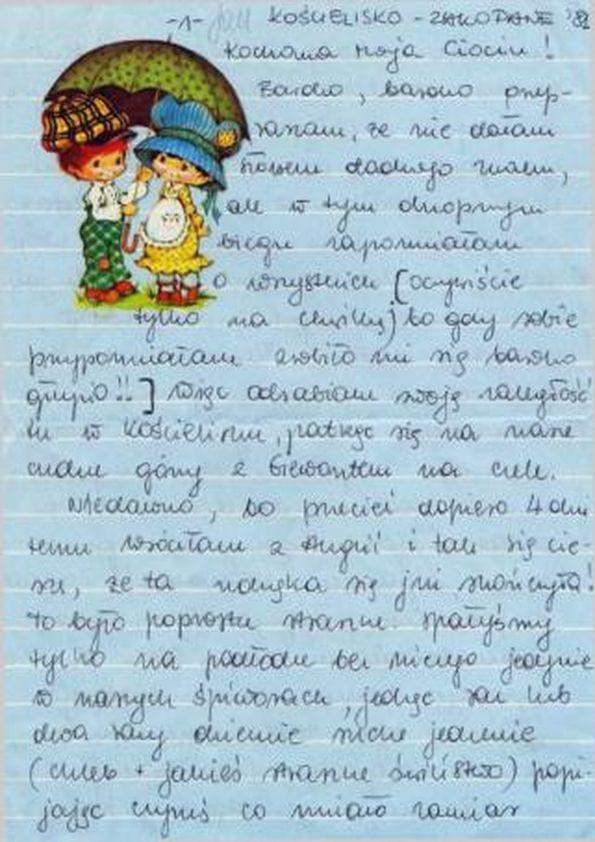 -1- KOŚCIELISKO - ZAKOPANE '82
Kochana moja Ciociu!
Bardzo, bardzo przep-
raszam, że nie dałam
żadnego znaku,
ale w tym
biegu zapomniałam
o wszystkich [oczywiście
tylko na chwilkę) bo gdy sobie
przypomniałam zrobiło mi się bardzo
głupio!!] Więc odrabiam swoją zaległość
tu w Kościelisku, patrząc się na nasze
cudne góry z Giewontem na czele.
Niedawno, bo przecież dopiero 4 dni
temu wróciłam z Anglii i tak się cie-
szę, że ta męczka się już skończyła!
To było poprostu straszne. Spałyśmy
tylko na podłodze bez niczego jedynie
w naszych śpiworach, jedząc raz lub
dwa razy dziennie suche jedzenie
(chleb + jakieś straszne świństwo) popi-
jając czymś, co miało zamiar